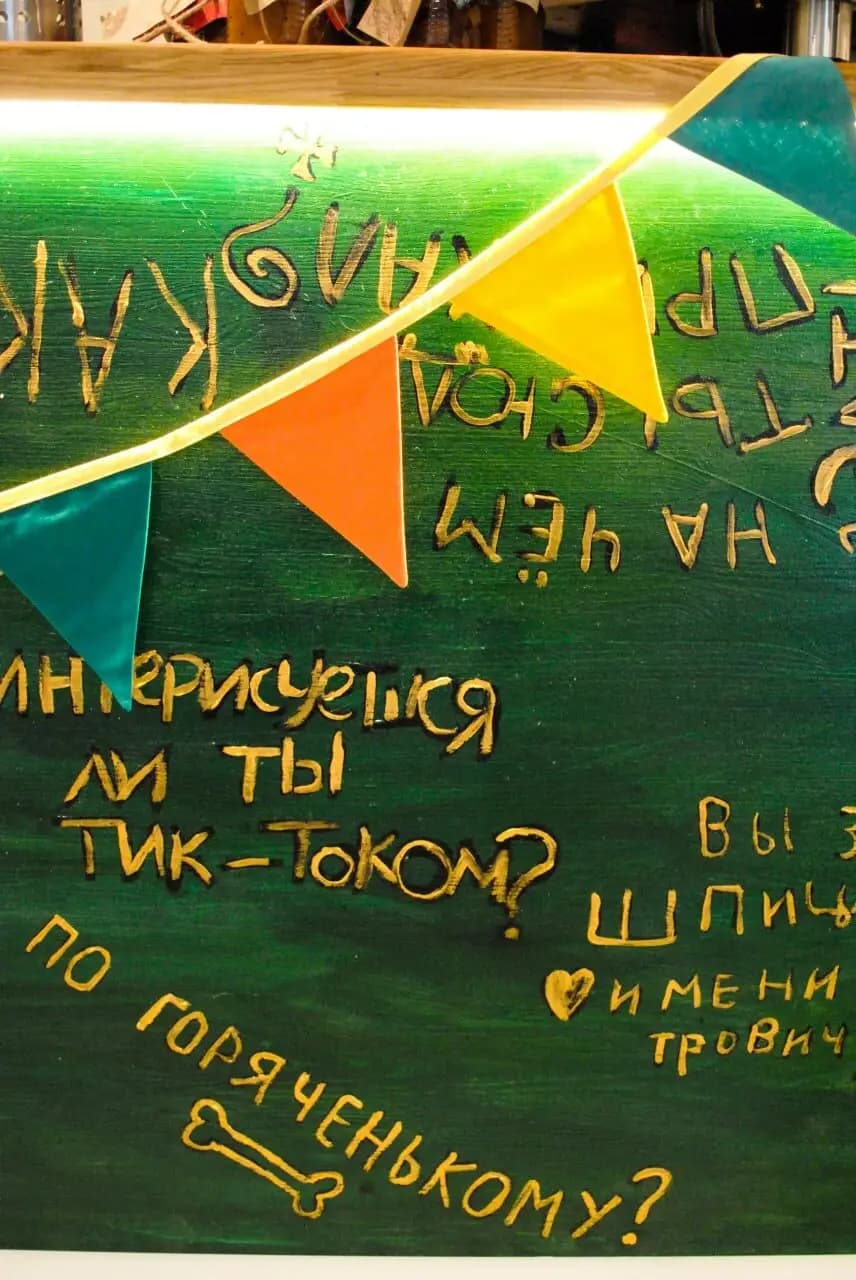 НА ЧЁМ
ТЫ СЮДА
КАК
ИНТеРИСУеШСЯ
ЛИ ТЫ
ТИК-ТоКОМ?
ПО ГОРЯЧЕНЬКОМУ?
ВЫ
ШПИЦ
ИМЕНИ
ТРОВИЧ